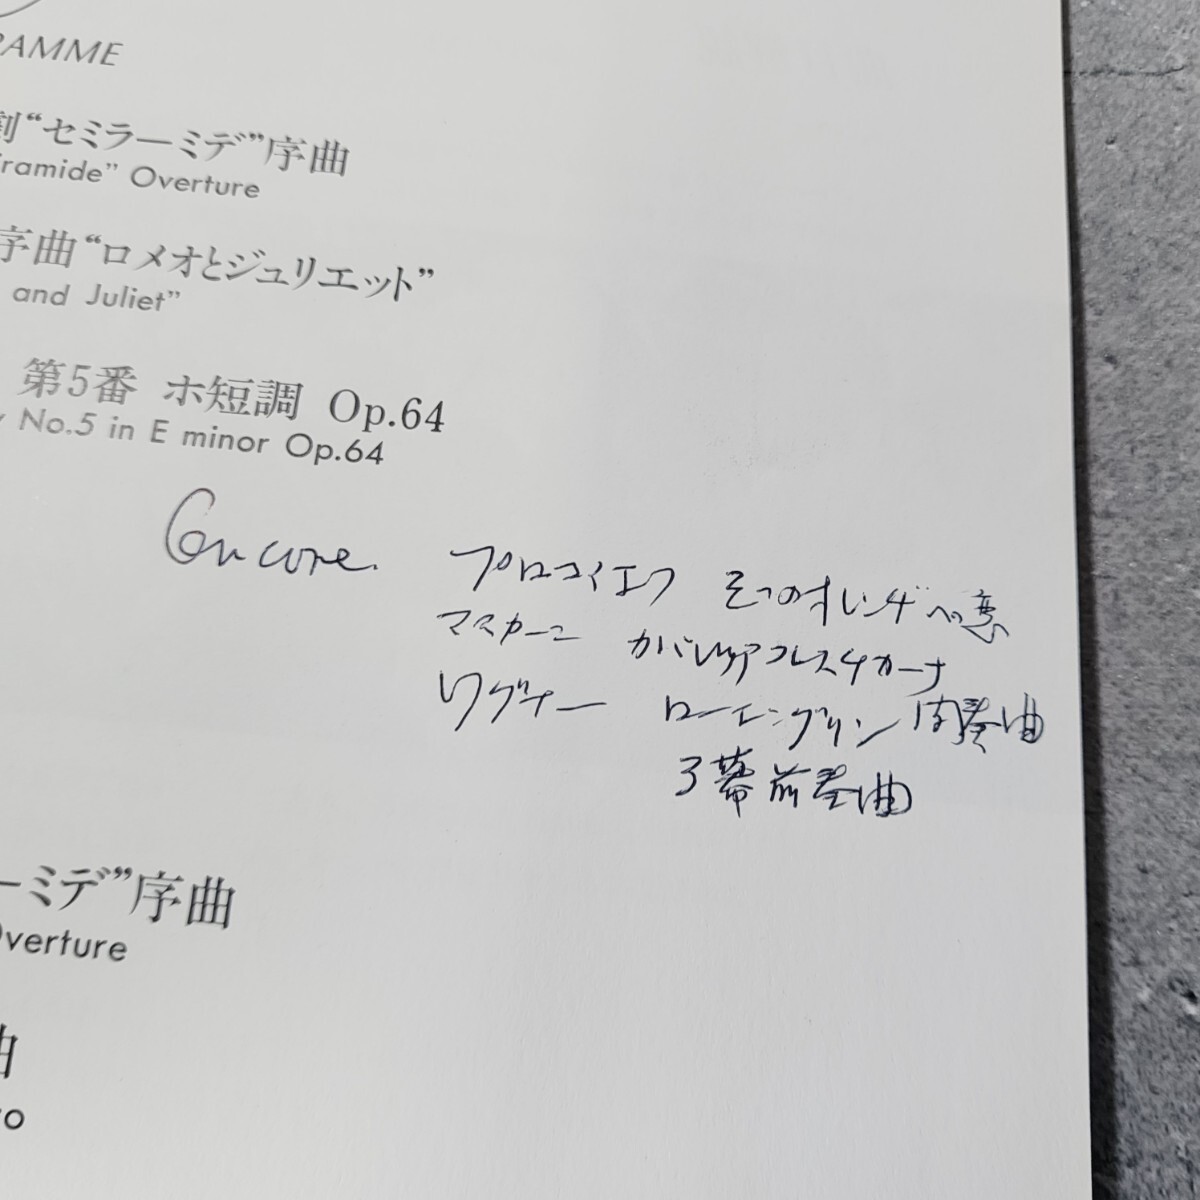 RAMME
劇“セミラーミデ”序曲
iramide” Overture
序曲“ロメオとジュリエット”
and Juliet”
第5番 ホ短調 Op.64
y No.5 in E minor Op.64
Encore. プロコフィエフ 3つのオレンジへの恋
マスカーニ カバレリアルスチカーナ
ワグナー ローエングリン 間奏曲
3幕前奏曲
ーミデ”序曲
Overture
曲
ro